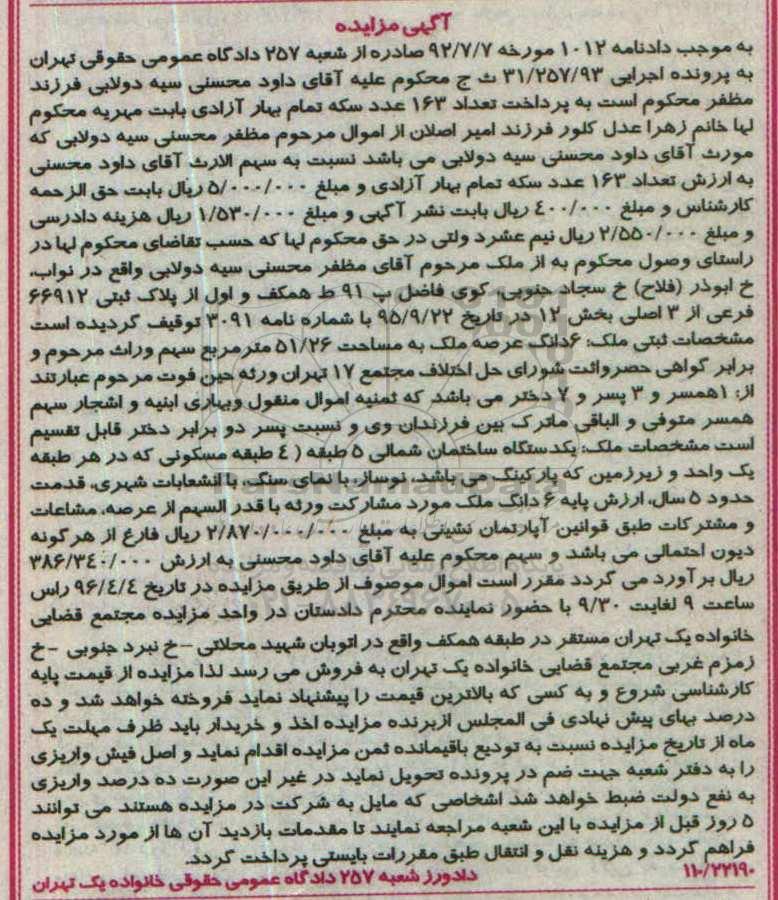 آگهی مزایده
به موجب دادنامه ۱۰۱۲ مورخه ۹۲/۷/۷ صادره از شعبه ۲۵۷ دادگاه عمومی حقوقی تهران
به پرونده اجرایی ۳۱/۲۵۷/۹۳ ث ج محکوم علیه آقای داود محسنی سیه دولابی فرزند
مظفر محکوم است به پرداخت تعداد ۱۶۳ عدد سکه تمام بهار آزادی بابت مهریه محکوم
لها خانم زهرا عدل کلور فرزند امیر اصلان از اموال مرحوم مظفر محسنی سیه دولابی که
مورث آقای داود محسنی سیه دولابی می باشد نسبت به سهم الارث آقای داود محسنی
به ارزش تعداد ۱۶۳ عدد سکه تمام بهار آزادی و مبلغ ۵/۰۰۰/۰۰۰ ریال بابت حق الزحمه
کارشناس و مبلغ ۴۰۰/۰۰۰ ریال بابت نشر آگهی و مبلغ ۱/۵۳۰/۰۰۰ ریال هزینه دادرسی
و مبلغ ۲/۵۵۰/۰۰۰ ریال نیم عشرد ولتی در حق محکوم لها که حسب تقاضای محکوم لها در
راستای وصول محکوم به از ملک مرحوم آقای مظفر محسنی سیه دولابی واقع در نواب،
خ ابوذر (فلاح) خ سجاد جنوبی، کوی فاضل پ ۹۱ ط همکف و اول از پلاک ثبتی ۶۶۹۱۲
فرعی از ۳ اصلی بخش ۱۲ در تاریخ ۹۵/۹/۲۲ با شماره نامه ۳۰۹۱ توقیف گردیده است
مشخصات ثبتی ملک: ۶دانگ عرصه ملک به مساحت ۵۱/۲۶ مترمربع سهم وراث مرحوم و
برابر گواهی حصروراثت شورای حل اختلاف مجتمع ۱۷ تهران ورثه حین فوت مرحوم عبارتند
از: ۱همسر و ۳ پسر و ۷ دختر می باشد که ثمنیه اموال منقول وبهاری ابنیه و اشجار سهم
همسر متوفی و الباقی ماترک بین فرزندان وی و نسبت پسر دو برابر دختر قابل تقسیم
است مشخصات ملک: یکدستگاه ساختمان شمالی ۵ طبقه ( ۴ طبقه مسکونی که در هر طبقه
یک واحد و زیرزمین که پارکینگ می باشد، نوساز، با نمای سنگ، با انشعابات شهری، قدمت
حدود ۵ سال، ارزش پایه ۶ دانگ ملک مورد مشارکت ورثه با قدر السهم از عرصه، مشاعات
و مشترکات طبق قوانین آپارتمان نشینی به مبلغ ۲/۸۷۰/۰۰۰/۰۰۰ ریال فارغ از هرگونه
دیون احتمالی می باشد و سهم محکوم علیه آقای داود محسنی به ارزش ۳۸۶/۳۴۰/۰۰۰
ریال برآورد می گردد مقرر است اموال موصوف از طریق مزایده در تاریخ ۹۶/۴/۴ راس
ساعت ۹ لغایت ۹/۳۰ با حضور نماینده محترم دادستان در واحد مزایده مجتمع قضایی
خانواده یک تهران مستقر در طبقه همکف واقع در اتوبان شهید محلاتی –خ نبرد جنوبی –خ
زمزم غربی مجتمع قضایی خانواده یک تهران به فروش می رسد لذا مزایده از قیمت پایه
کارشناسی شروع و به کسی که بالاترین قیمت را پیشنهاد نماید فروخته خواهد شد و ده
درصد بهای پیش نهادی فی المجلس ازبرنده مزایده اخذ و خریدار باید ظرف مهلت یک
ماه از تاریخ مزایده نسبت به تودیع باقیمانده ثمن مزایده اقدام نماید و اصل فیش واریزی
را به دفتر شعبه جهت ضم در پرونده تحویل نماید در غیر این صورت ده درصد واریزی
به نفع دولت ضبط خواهد شد اشخاصی که مایل به شرکت در مزایده هستند می توانند
۵ روز قبل از مزایده با این شعبه مراجعه نمایند تا مقدمات بازدید آن ها از مورد مزایده
فراهم گردد و هزینه نقل و انتقال طبق مقررات بایستی پرداخت گردد.
۱۱۰/۲۲۱۹۰ دادورز شعبه ۲۵۷ دادگاه عمومی حقوقی خانواده یک تهران